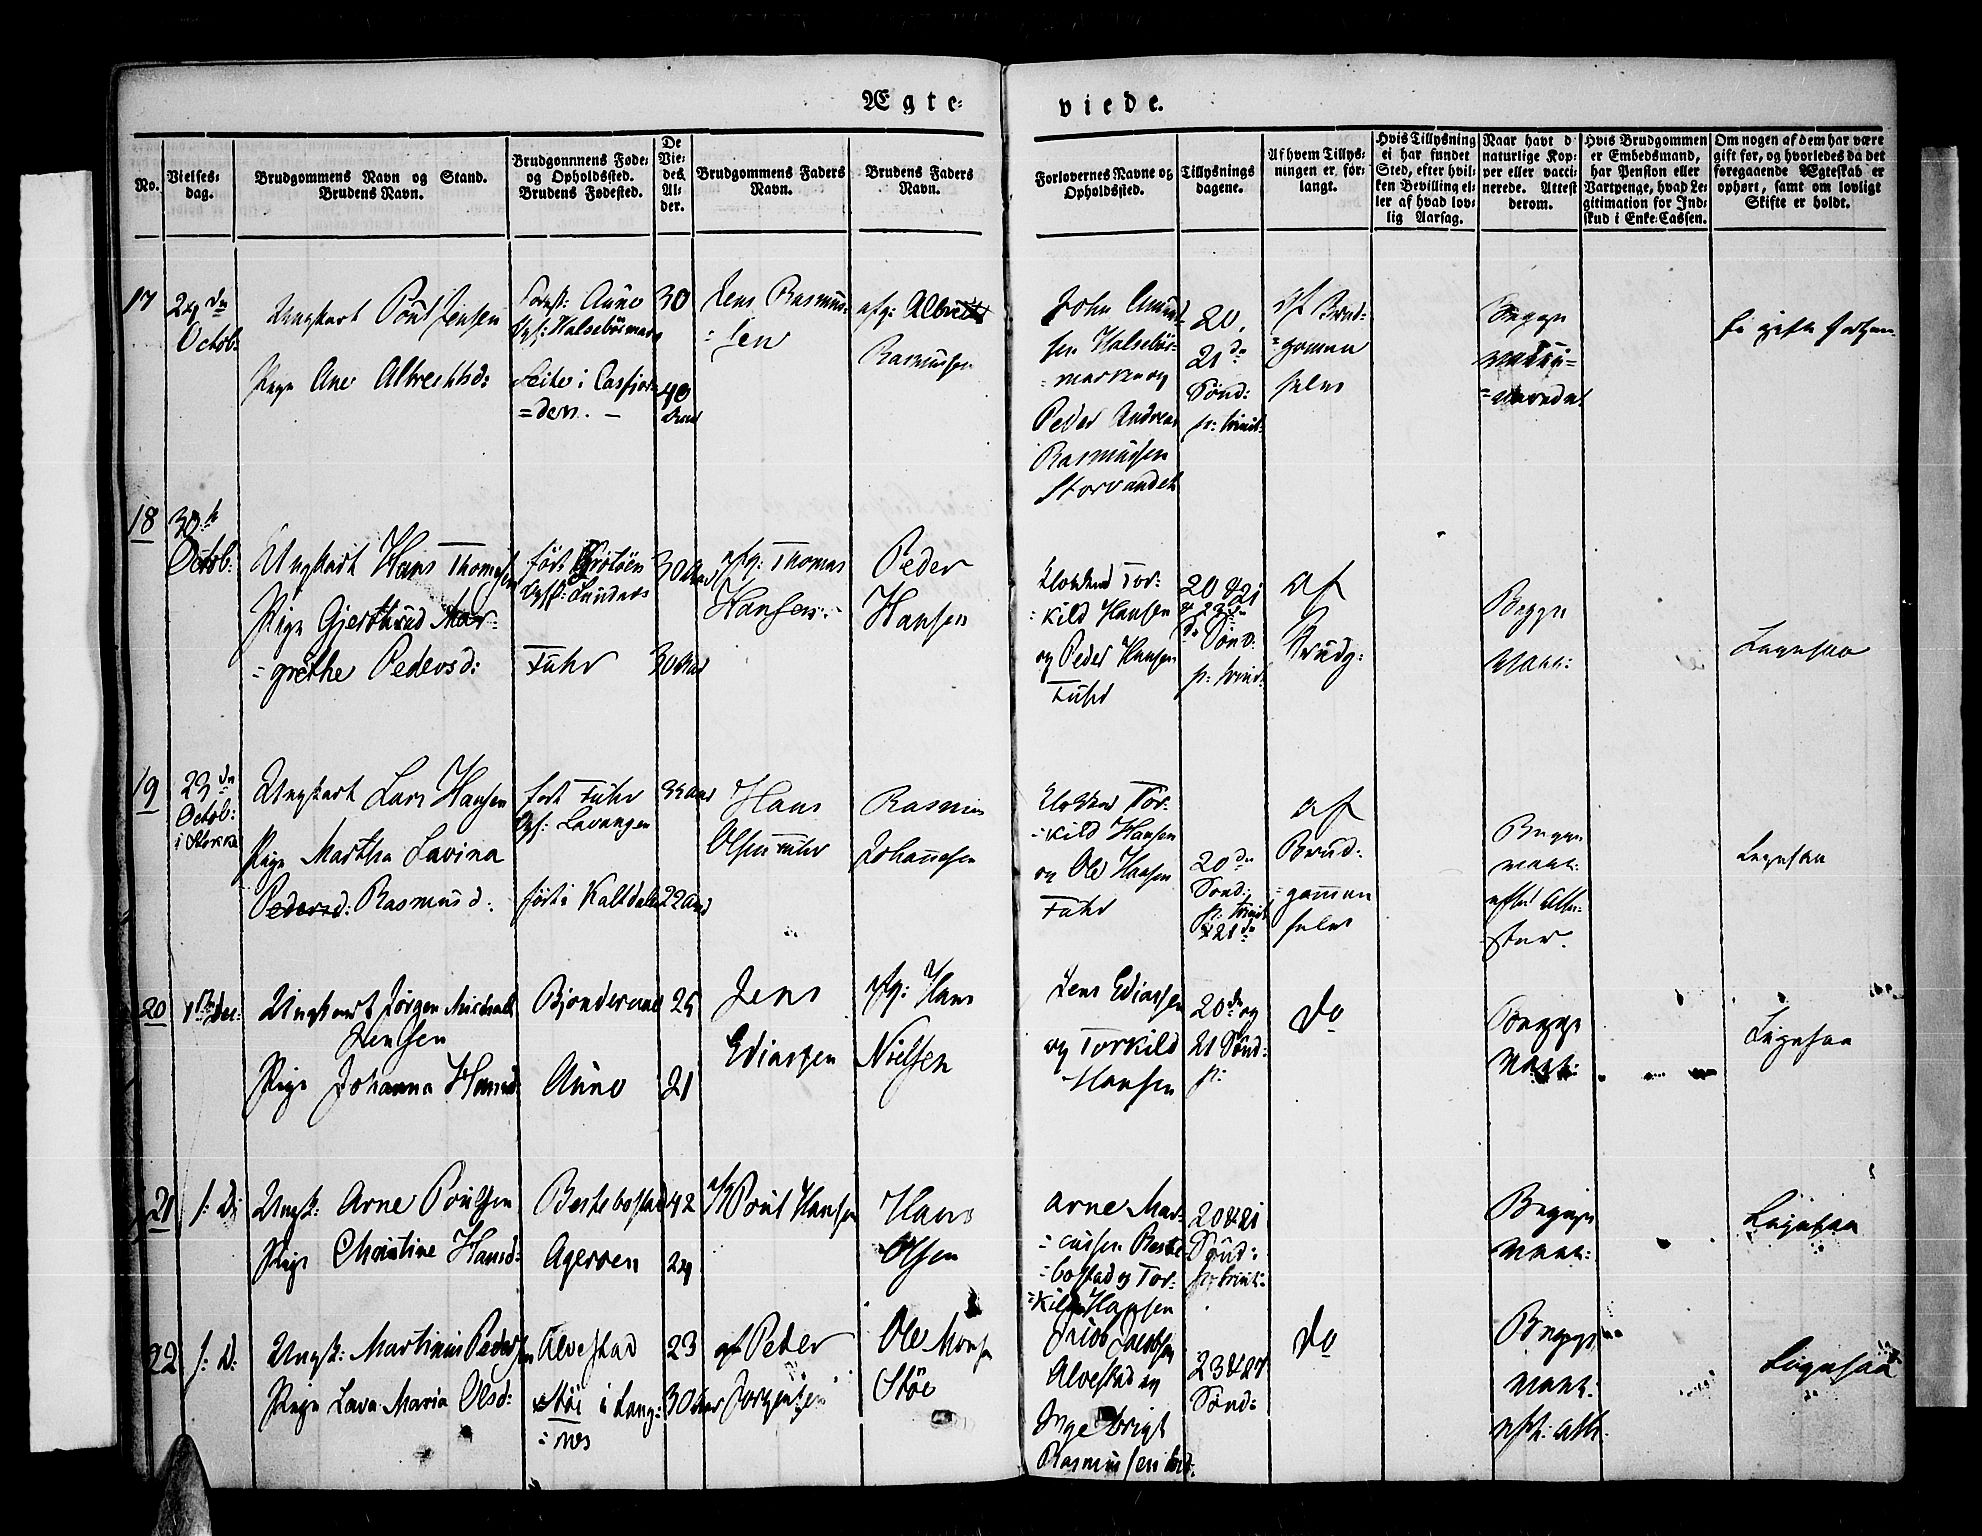 Ægte-
viede.
No.
Vielses-
dag.
Brudgommens Navn og Stand.
Brudens Navn.
Brudgomnnens Føde-
og Opholdssted.
Brudens Fødested.
De
Vie-
des
Al-
der.
Brudgommens Faders
Navn.
Brudens Faders
Navn.
Forlovernes Navne og
Opholdssted.
Tillysnings
dagene.
Af hvem Tillys-
ningen er for-
langt.
Hvis Tillysning
ei har fundet
Sted, efter hvil-
ken Bevilling el-
ler af hvad lov-
lig Aarsag.
Naar havt d
naturlige Kop-
per eller vacci-
nerede. Attest
derom.
Hvis Brudgommen
er Embedsmand,
har Pension eller
Vartpenge, hvad Le-
gitimation for Ind-
skud i Enke-Cassen.
Om nogen af dem har være
gift før, og hvorledes da det
foregaaende Ægteskab er
ophørt, samt om lovligt
Skifte er holdt.
17
Octob:
Ungkart Poul Jensen
Pige Ane Albrechtsd:
Aune
Halsebøemark
i Casfjor
=den. –
30
40
Jens Rasmus-
=sen
afg: Albrecht
Rasmusen
John Amund-
sen Halsebøe-
=marken og
Peder Andreas
Rasmusen
Storvandet
20.
21 de
Sønd:
p: trinit:
af Brud-
=gomen
selv
Begge
18
30te
Octob:
Ungkart Hans Thomesen
Pige Gjerthrud Mar-
=grethe Pedersd:
født
Fuhr
30 Aar
30 Aar
afg: Thomas
Hansen
Peder
Hansen
Tor-
=kild Hansen
og Peder Hansen
Fuhr
20 & 21
Sønd:
p: trinit:
af
Brudg:
Begge
vacc:
Ligesaa
19
23 de
Octob:
Ungkart Lars Hansen
Pige Martha Lavina
Pedersd: Rasmusd.
født Fuhr
Lavangen
født i Kaltdale
22 Aar
Hans
Olsen Fuhr
Rasmus
Johannesen
Tor-
=kild Hansen
og Ole Hansen
Fuhr
20 de
Sønd:
p: trinit
& 21 de
af
Brud-
=gommen
selv
Begge
vacc:
efter Atte-
ster.
Ligesaa
20
1ste Dec:
Ungkart Jørgen Michael
Jensen
Pige Johanna Hansd:
25
Aune
21
Jens
Ediassen
afg: Hans
Nielsen
Jens Ediassen
og Torkild
Hansen
20 de og
21 Sønd:
p:
do
Begge
vacc:
Ligesaa
21
f: D:
Ungk: Arne Poulsen
Pige Christine Hansd:
Bestebostad
Ageroen
42
Poul Hansen
Hans
Olsen
Arne Mar-
=cussen Beste
=bostad og Tor-
=kild Hansen
20 & 21
Sønd:
p: trinit:
Begge
vacc:
Ligesaa
22
f: D:
Ungk: Martinus Pedersen
Pige Lava Maria Olsd:
Alvestad
Støe i Lang-
=nes
23
30 Aar
af Peder
Jørgensen
Ole Monsen
Støe
Jacob Jacobsen
Alvestad og
Ingebrigt
Rasmussen
23 & 24
Sønd:
do
Begge
vacc:
Ligesaa